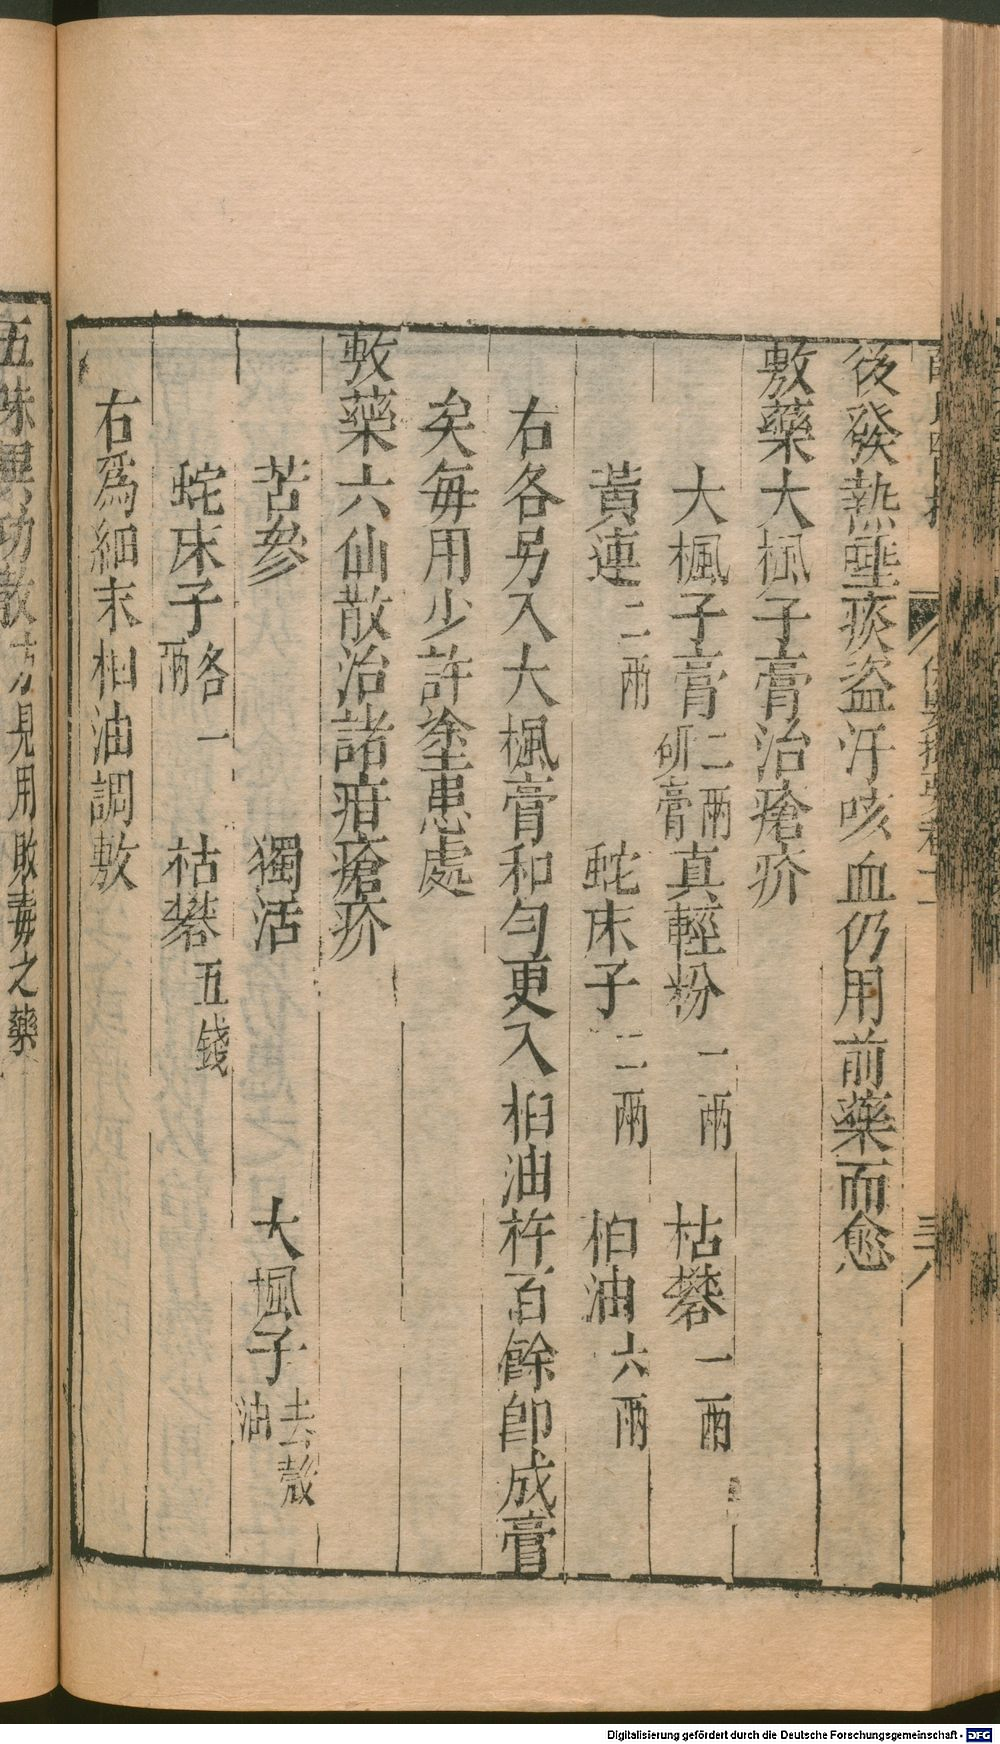 後發熱唾痰盗汗咳血仍用前藥而愈
敷藥大楓子膏治瘡疥
大楓子膏二兩研膏真輕粉一兩 枯礬一兩
黃連二兩 蛇床子二兩 桕油六兩
右各另入大楓膏和勻更入桕油杵百餘即成膏
矣每用少許塗患處
敷藥六仙散治諸疳瘡疥
苦參 獨活 大楓子去殼油
蛇床子各一兩 枯礬五錢
右爲細末桕油調敷
五味異功散方見用敗毒之藥
Digitalisierung gefördert durch die Deutsche Forschungsgemeinschaft - DFG